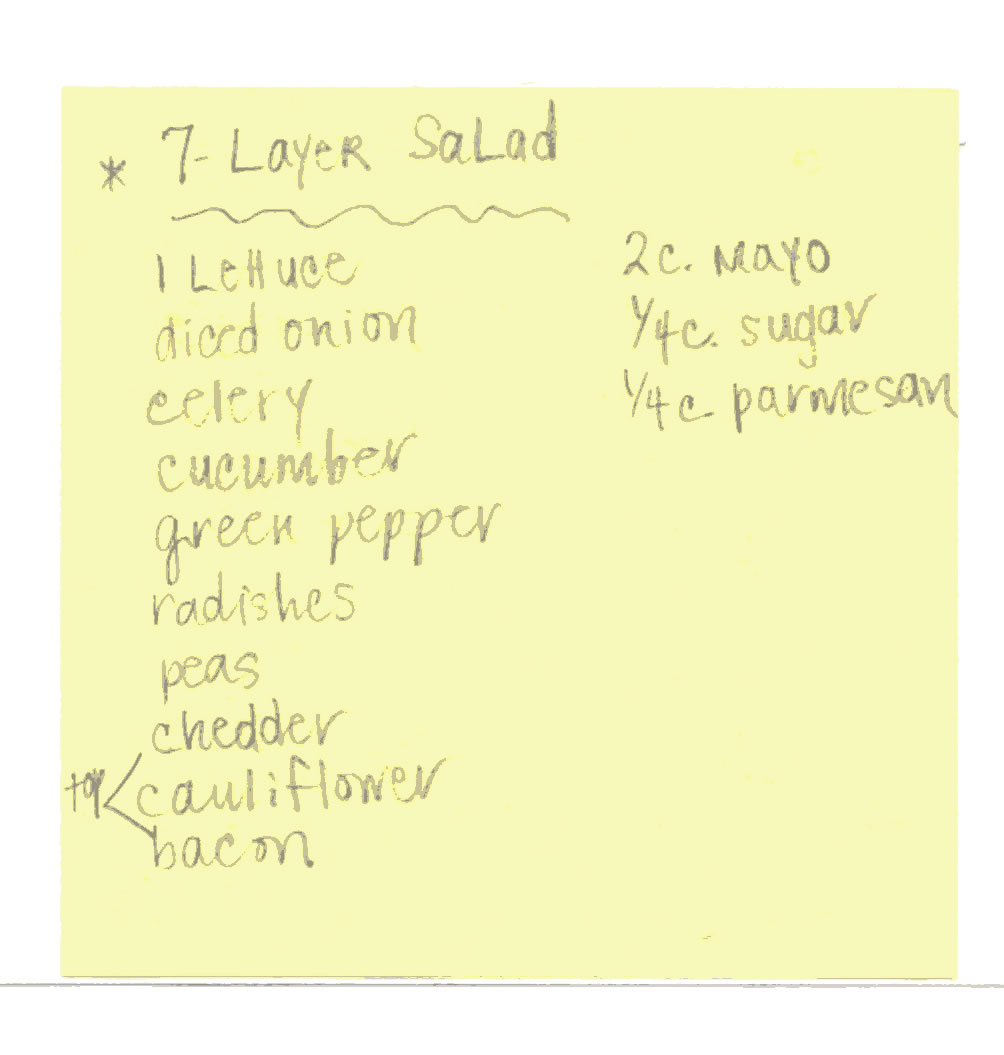 * 7-Layer Salad
1 Lettuce
diced onion
celery
cucumber
green pepper
radishes
peas
chedder
top < cauliflower
bacon
2c. Mayo
1/4c. sugar
1/4c parmesan